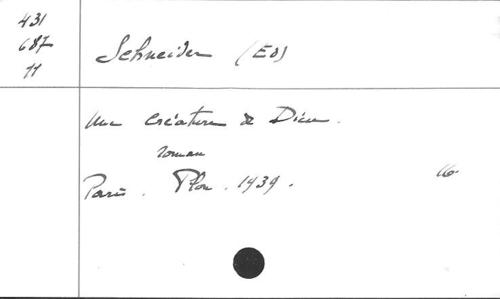 431
687
11
Schneider (Ed)
Une Créature de Dieu.
roman
Paris. Plon. 1939.
16.